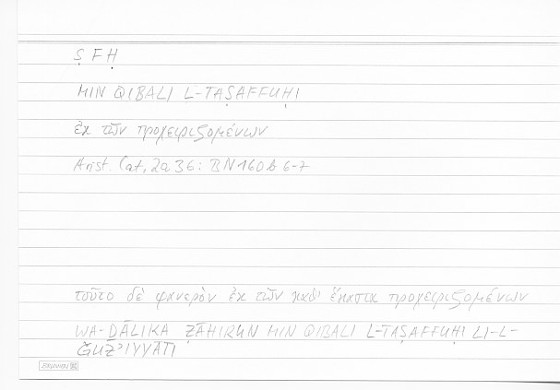 Ṣ F Ḥ
MIN QIBALI L-TAṢAFFUḤI
ἐκ τῶν προχειριζομένων
Arist. Cat, 2a 36: BN 160b 6-7
τοῦτο δὲ φανερὸν ἐκ τῶν καθ' ἕκαστα προχειριζομένων
WA-ḎĀLIKA ẒĀHIRUN MIN QIBALI L-TAṢAFFUḤI LI-L-
ǦUZʾIYYĀTI